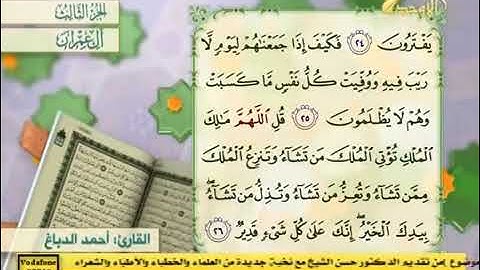 الجزء الثالث
آل عمران
الأوحد
يَفْتَرُونَ ٢٤ فَكَيْفَ إِذَا جَمَعْنَٰهُمْ لِيَوْمٍ لَّا
رَيْبَ فِيهِ وَوُفِّيَتْ كُلُّ نَفْسٍ مَّا كَسَبَتْ
وَهُمْ لَا يُظْلَمُونَ ٢٥ قُلِ ٱللَّهُمَّ مَٰلِكَ
ٱلْمُلْكِ تُؤْتِى ٱلْمُلْكَ مَن تَشَآءُ وَتَنزِعُ ٱلْمُلْكَ
مِمَّن تَشَآءُ وَتُعِزُّ مَن تَشَآءُ وَتُذِلُّ مَن تَشَآءُ ۖ
بِيَدِكَ ٱلْخَيْرُ ۖ إِنَّكَ عَلَىٰ كُلِّ شَىْءٍ قَدِيرٌ ٢٦
القارئ: أحمد الدباغ
Vodafone
موضوع) من تقديم الدكتور حسن الشيخ مع نخبة جديدة من العلماء والخطباء والأطباء والشعراء